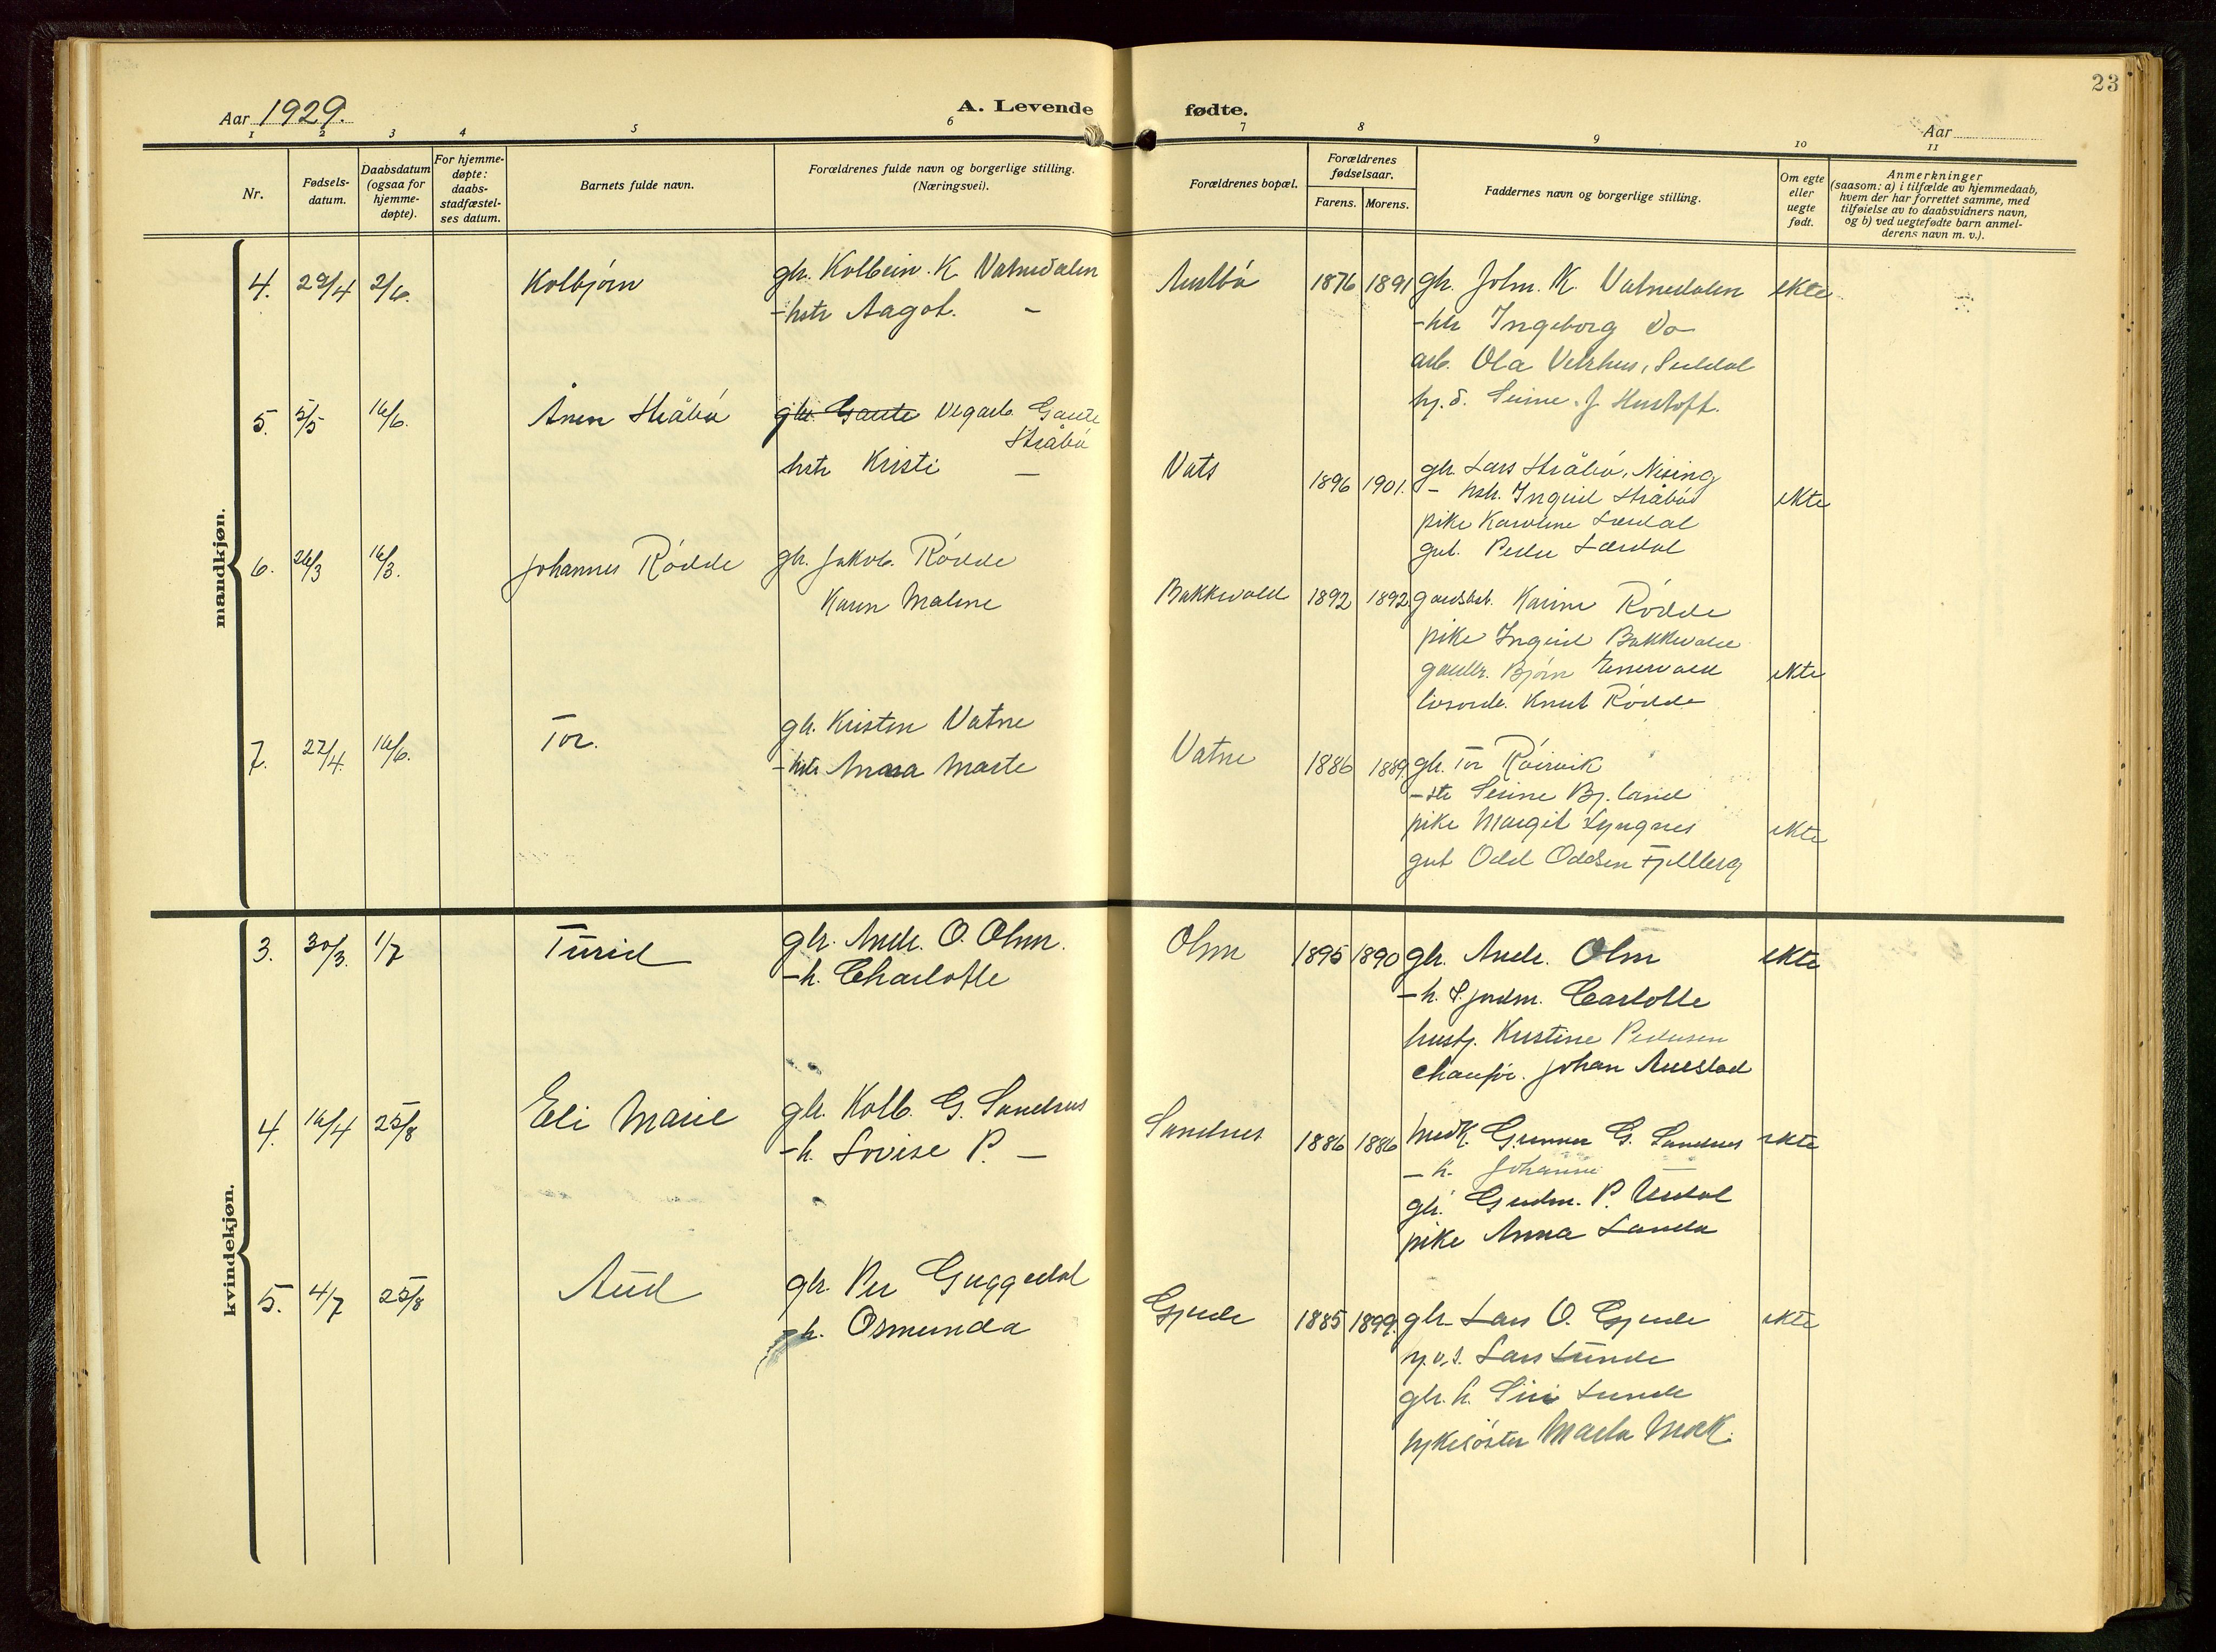 23
Aar 1929.
A. Levende fødte.
Aar
1 2 3 4 5 6 7 8 9 10 11
Nr.
Fødsels-
datum.
Daabsdatum
(ogsaa for
hjemme-
døpte).
For hjemme-
døpte:
daabs-
stadfæstel-
ses datum.
Barnets fulde navn.
Forældrenes fulde navn og borgerlige stilling.
(Næringsvei).
Forældrenes bopæl.
Forældrenes
fødselsaar.
Farens. Morens.
Faddernes navn og borgerlige stilling.
Om egte
eller
uegte
født.
Anmerkninger
(saasom: a) i tilfælde av hjemmedaab,
hvem der har forrettet samme, med
tilføielse av to daabsvidners navn,
og b) ved uegtefødte barn anmel-
derens navn m. v.).
mandkjøn.
4. 29/4 2/6. Kolbjørn
gbr. Kolbein K. Vatnedalen
- hstr Aagot. -
Austbø 1876 1891
gbr. John. K. Vatnedalen ekte
- hstr Ingeborg Do
arb. Ola Vetrhus, Suldal
5. 5/5 16/6. Ånen Stråbø
gbr. Gaute vegarb. Gaute
Stråbø
hstr Kristi -
Vats 1896 1901.
gbr Lars Stråbø,
- hstr. Ingrid Stråbø ekte
pike Karoline Lærdal
gut. Peder Lærdal
6. 26/3 16/3. Johannes Rødde
gbr. Jakob Rødde
Karen Maline
Bakkevold 1892 1892
Karine Rødde
pike Ingrid Bakkevold
Bjørn ekte
Knut Rødde
7. 27/4. 16/6. Tor.
gbr. Kristen Vatne
- hstr Anna Marte
Vatne 1886 1889.
gbr. Tor Røirvik
pike Margit Lyngnes ekte
gut Odd Oddsen Fjellberg
kvindekjøn.
3. 30/3. 1/7 Turid
gbr. Andr. O. Olsen.
- h. Charlotte
Olsen 1895 1890
gbr. Andr. Olsen ekte
- h. Carlotte
hustr. Kristine Pedersen
chaufør. Johan Aurstad
4. 16/4 25/8 Eli Marie
gbr. Kolb. G. Sandnes
- h. Lovise P. -
Sandnes 1886 1886
Gunnar G. Sandnes ekte
- h. Johanne
gbr. Gudm. P.
pike Anna Landa
5. 4/7 25/8 Aud
gbr. Per Guggedal
h. Osmunda
Gjerde 1885 1899.
gbr Lars O. Gjerde ekte
Lars Lunde
gbr. h. Siri Lunde
sykesøster Marta Moek.